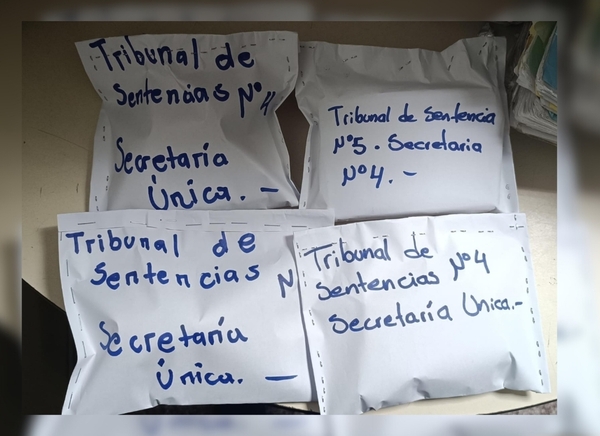 Tribunal de
Sentencias Nº 4
Secretaría
Única. —
Tribunal de Sentencia
Nº5. Secretaria
Nº4. —
Tribunal de
Sentencias N
Secretaría
Única. —
Tribunal de
Sentencias Nº 4
Secretaría Única.-